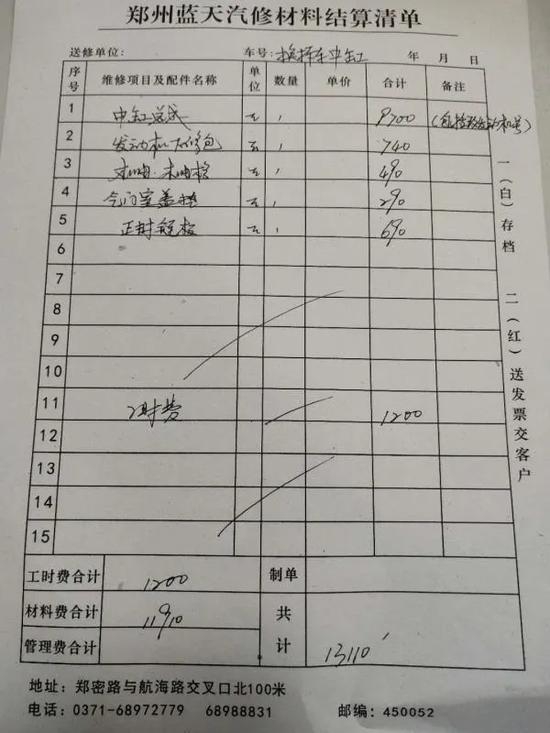 郑州蓝天汽修材料结算清单
送修单位: 车号: 换择车中缸 年 月 日
序号 维修项目及配件名称 单位 数量 单价 合计 备注
1 中缸总成 元 9700
2 发动机大修包 元 740
3 机油.机油格 元 490
4 气门室盖垫 元 290
5 正时链板 元 690
6
7
8
9
10
11 工时费 1200
12
13
14
15
一(白)存档 二(红)送发票交客户
工时费合计 1200 制单
材料费合计 11910 共计 13110
管理费合计
地址: 郑密路与航海路交叉口北100米
电话: 0371-68972779 68988831 邮编: 450052